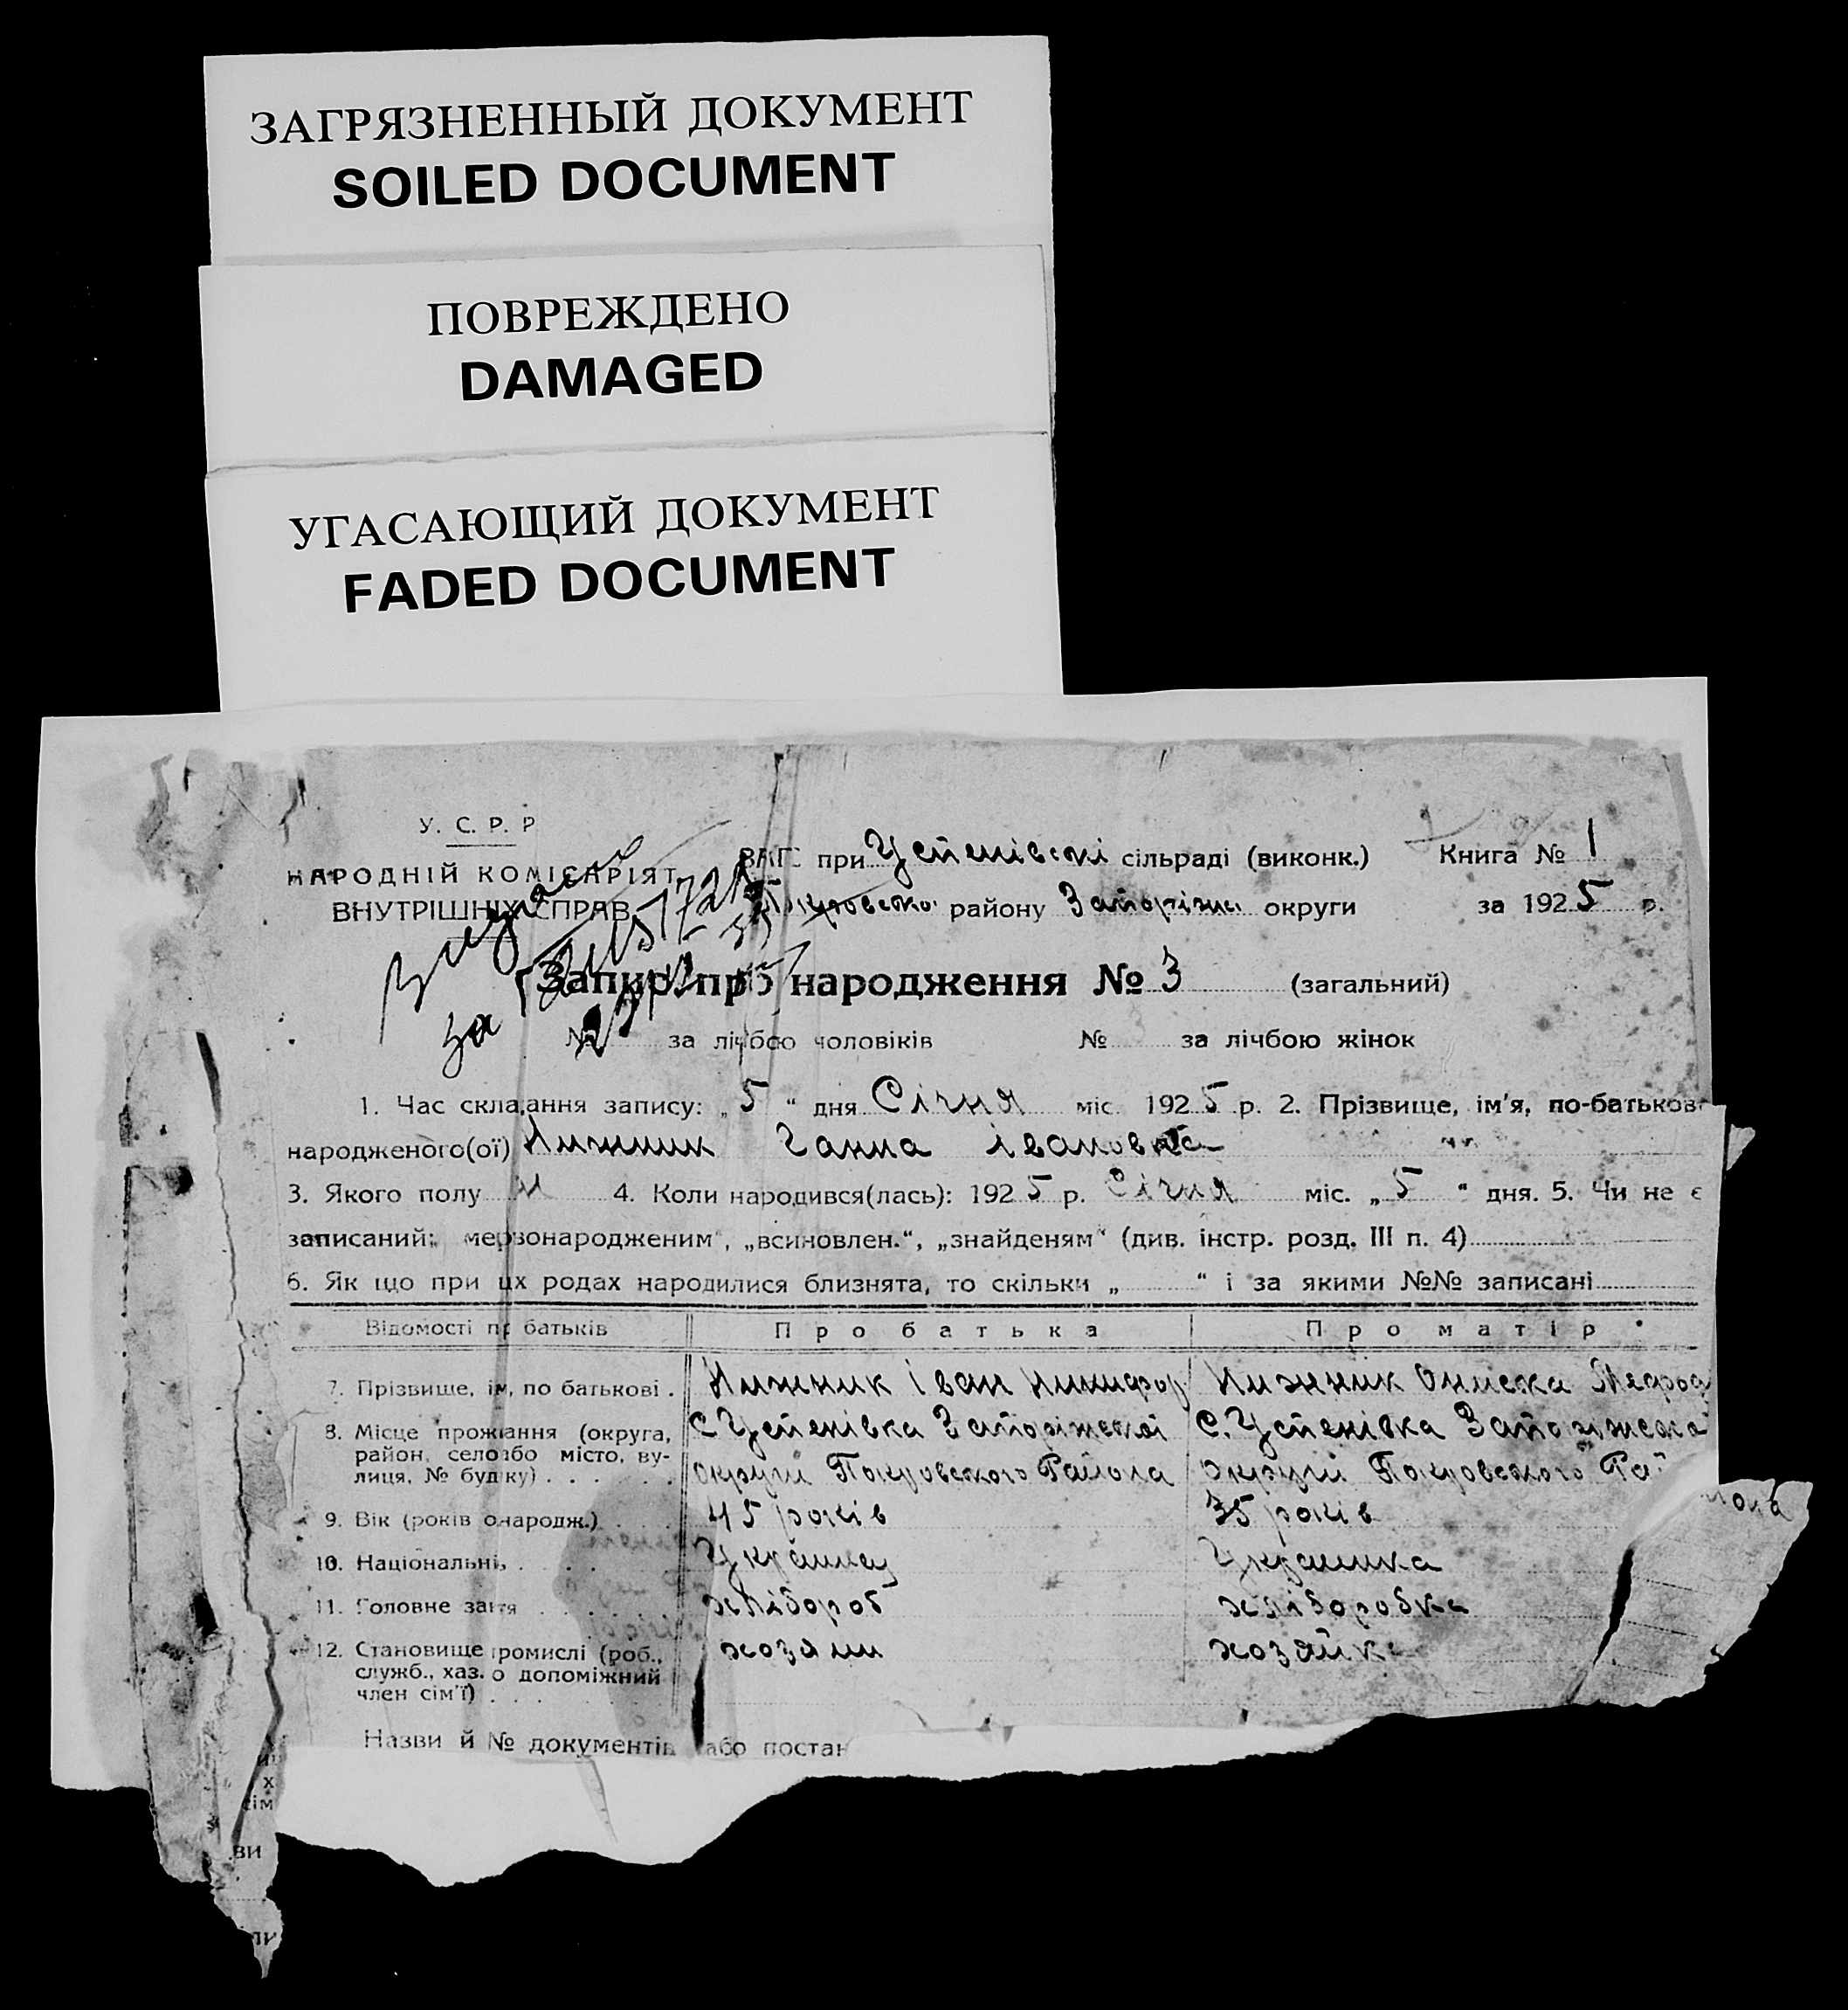 ЗАГРЯЗНЕННЫЙ ДОКУМЕНТ
SOILED DOCUMENT
ПОВРЕЖДЕНО
DAMAGED
УГАСАЮЩИЙ ДОКУМЕНТ
FADED DOCUMENT
У. С. Р. Р
НАРОДНІЙ КОМІСАРІЯТ
ВНУТРІШНІХ СПРАВ
при Успенівські сільраді (виконк.) Книга № 1
району Запоріжс округи за 1925 р.
Запис про народження № 3 (загальний)
№ за лічбою чоловіків № 3 за лічбою жінок
1. Час складання запису: „5“ дня Січня міс. 1925 р. 2. Прізвище, ім'я, по-батькові
народженого(ої) Нижник Ганна Івановна
3. Якого полу 4. Коли народився(лась): 1925 р. Січня міс. „5“ дня. 5. Чи не є
записаний: мервонародженим“, „всиновлен.“, „знайденям“ (див. інстр. розд. III п. 4)
6. Як що при цх родах народилися близнята, то скільки „ “ і за якими №№ записані
Відомості пр батьків Про батька Про матір
7. Прізвище, ім, по батькові . Нижник Іван Никифор Нижник Ониська Мефод
8. Місце прожиання (округа, район, село або місто, вулиця, № будку) . . . . . С Успенівка Запоріжської С. Успенівка Запоріжської
округи Покровского Района округи Покровского Району
9. Вік (років онародж.) 45 років 35 років
10. Національні . . . Українец Украинка
11. Головне заття . . . хлібороб хліборобка
12. Становище промислі (роб., служб., хаз. о допоміжний член сім'ї) . . . хозяин хозяйка
Назви й № документів або постан
х
сім
ви
ли